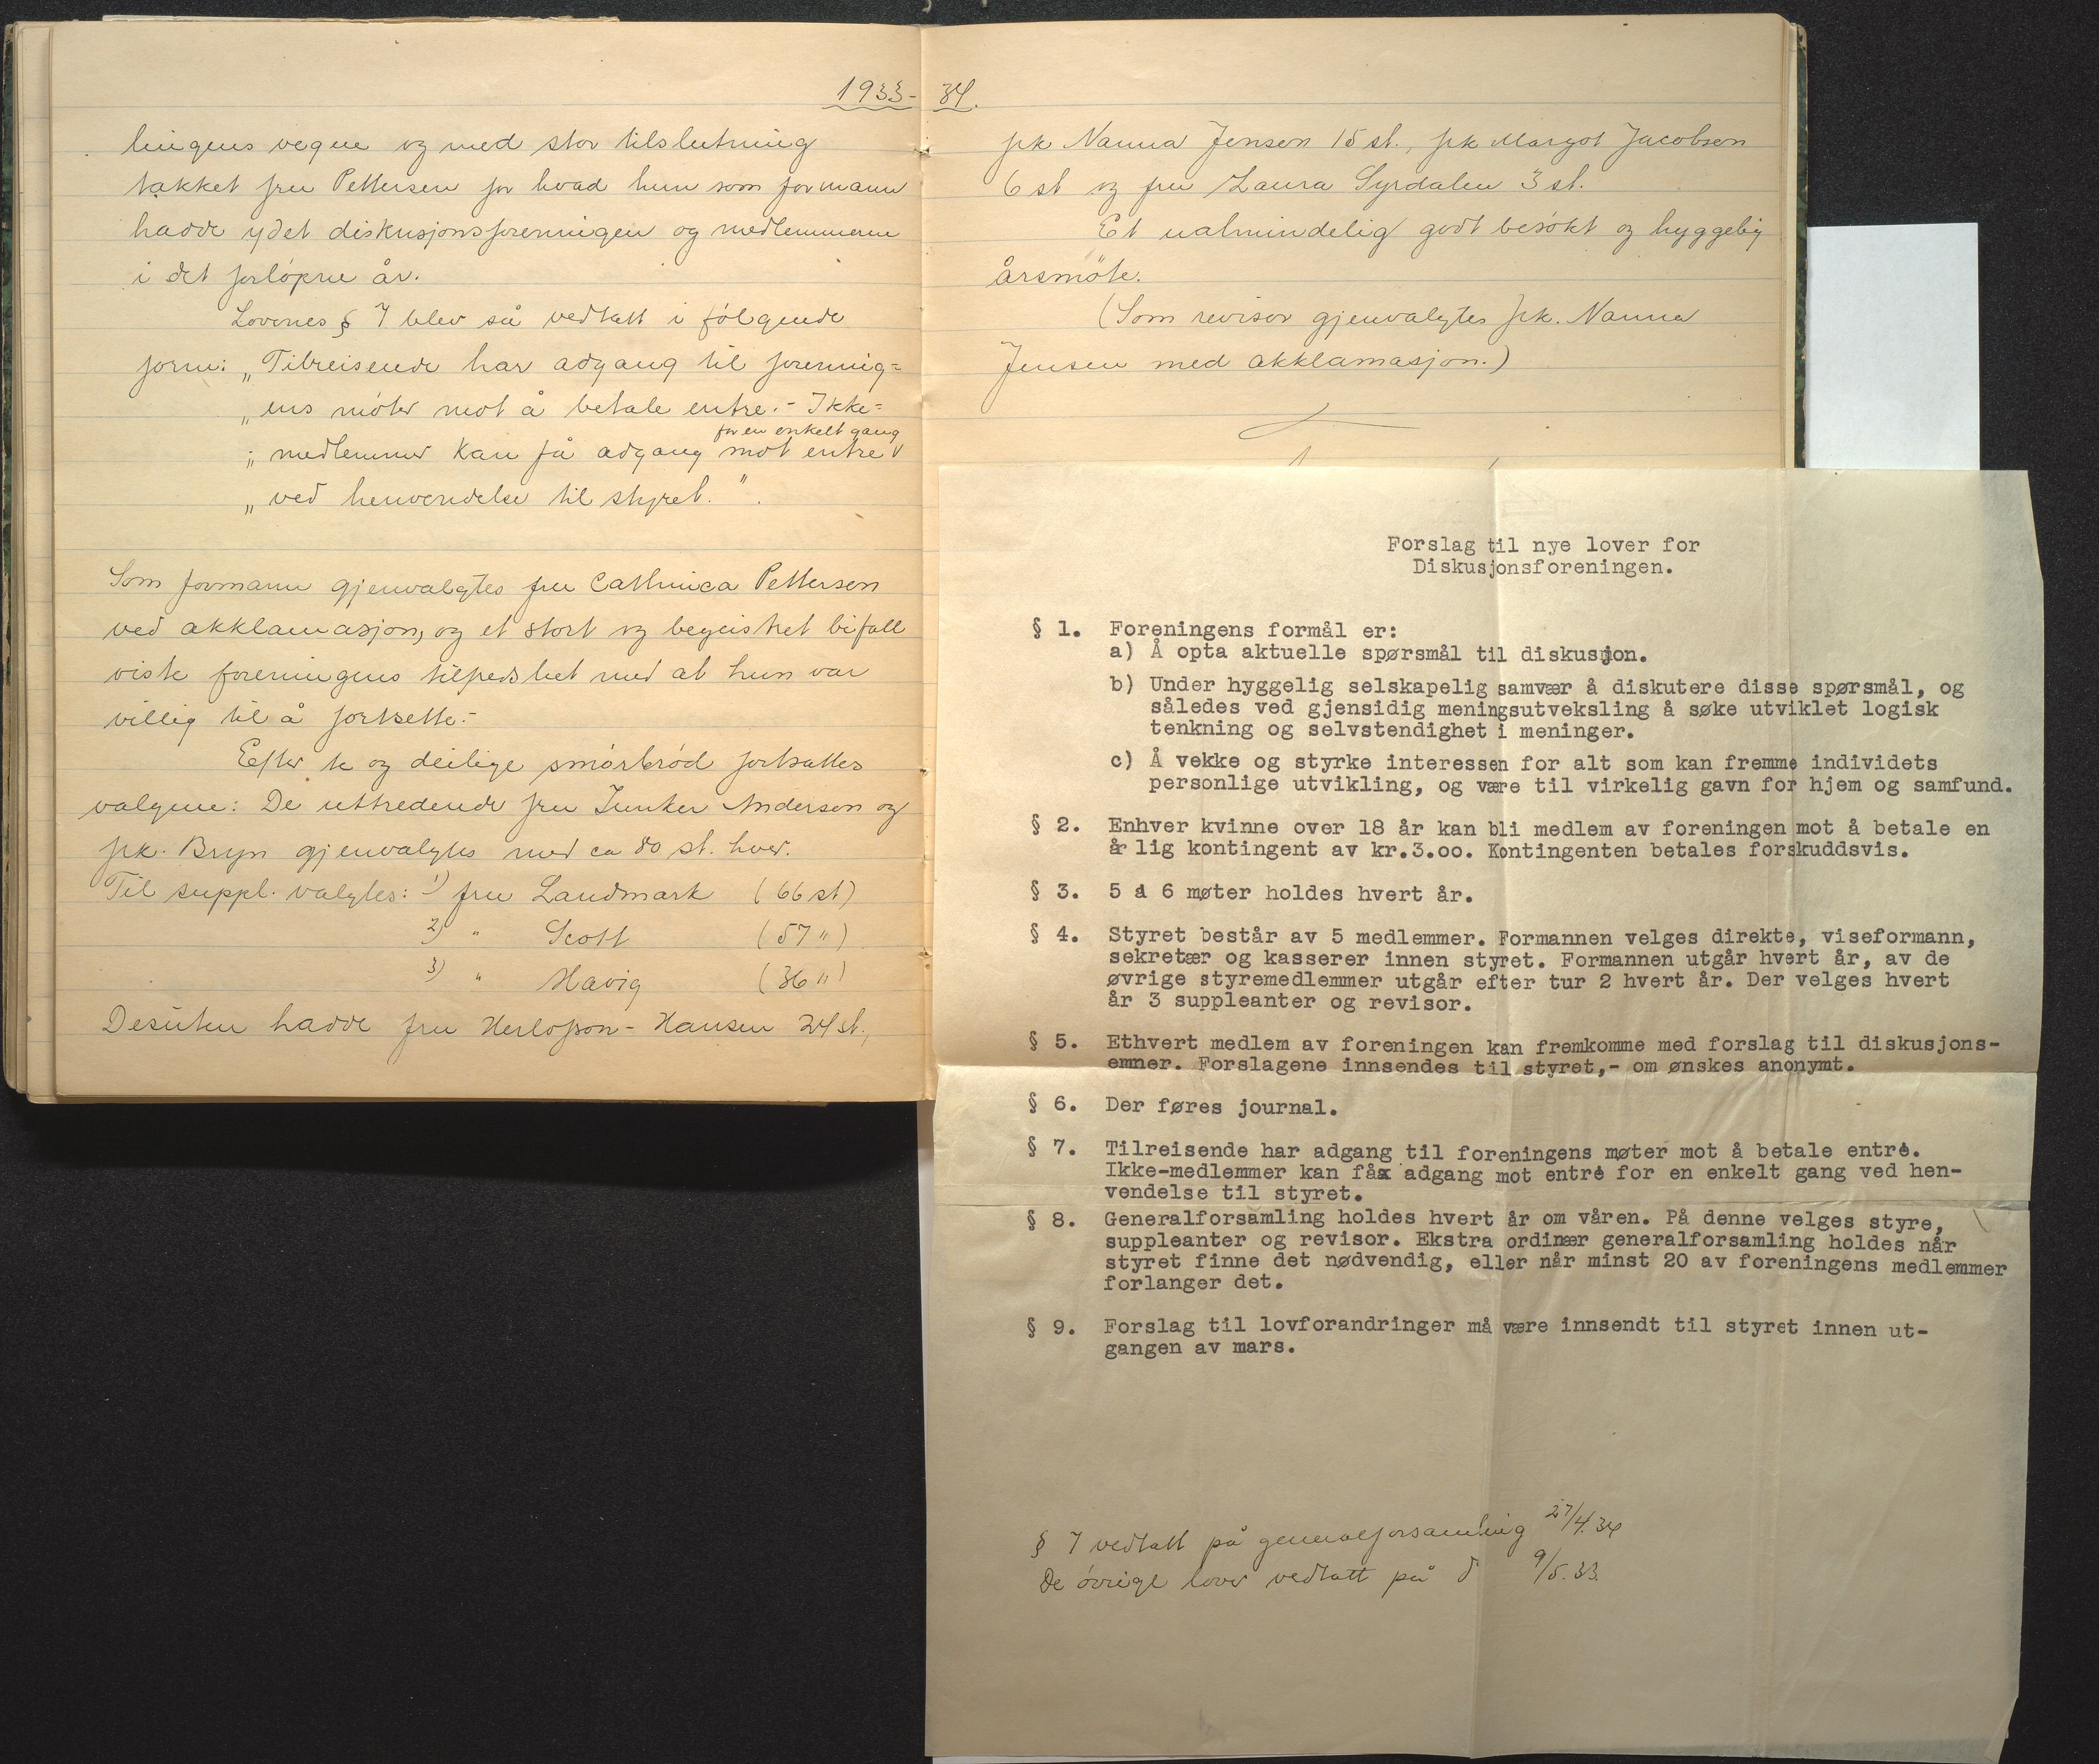 1933-34.
lingens vegne og med stor tilslutning
takket fru Pettersen for hvad hun som formann
hadde ydet diskusjonsforeningen og medlemmerne
i det forløpne år.
Lovenes § 7 blev så vedtatt i følgende
form: „Tilreisende har adgang til forening=
„ens møter mot å betale entre.- Ikke=
for en enkelt gang
„medlemmer kan få adgang mot entre √
„ved henvendelse til styret.”.
Som formann gjenvalgtes fru Cathinca Pettersen
ved akklamasjon, og et stort og begeistret bifall
viste foreningens tilfredshet med at hun var
villig til å fortsette.-
Efter te og deilige smørbrød fortsattes
valgene: De uttredende fru Junker Anderson og
frk. Bryn gjenvalgtes med ca 80 st. hver.
Til suppl. valgtes: 1) fru Landmark (66 st)
2) " Scott (57 ")
3) " Havig (36 ")
Desuten hadde fru Herlofson-Hansen 24 st.,
frk Nanna Jensen 15 st., frk Margot Jacobsen
6 st og fru Laura Syrdalen 3 st.
Et ualmindelig godt besøkt og hyggelig
årsmøte.
(Som revisor gjenvalgtes frk. Nanna
Jensen med akklamasjon.)
Forslag til nye lover for
Diskusjonsforeningen.
§ 1. Foreningens formål er:
a) Å opta aktuelle spørsmål til diskusjon.
b) Under hyggelig selskapelig samvær å diskutere disse spørsmål, og
således ved gjensidig meningsutveksling å søke utviklet logisk
tenkning og selvstendighet i meninger.
c) Å vekke og styrke interessen for alt som kan fremme individets
personlige utvikling, og være til virkelig gavn for hjem og samfund.
§ 2. Enhver kvinne over 18 år kan bli medlem av foreningen mot å betale en
år lig kontingent av kr.3.oo. Kontingenten betales forskuddsvis.
§ 3. 5 à 6 møter holdes hvert år.
§ 4. Styret består av 5 medlemmer. Formannen velges direkte, viseformann,
sekretær og kasserer innen styret. Formannen utgår hvert år, av de
øvrige styremedlemmer utgår efter tur 2 hvert år. Der velges hvert
år 3 suppleanter og revisor.
§ 5. Ethvert medlem av foreningen kan fremkomme med forslag til diskusjons-
emner. Forslagene innsendes til styret,- om ønskes anonymt.
§ 6. Der føres journal.
§ 7. Tilreisende har adgang til foreningens møter mot å betale entré.
Ikke-medlemmer kan få adgang mot entré for en enkelt gang ved hen-
vendelse til styret.
§ 8. Generalforsamling holdes hvert år om våren. På denne velges styre,
suppleanter og revisor. Ekstra ordinær generalforsamling holdes når
styret finne det nødvendig, eller når minst 20 av foreningens medlemmer
forlanger det.
§ 9. Forslag til lovforandringer må være innsendt til styret innen ut-
gangen av mars.
§ 7 vedtatt på generalforsamling 27/4.34
De øvrige lover vedtatt på d 9/5.33.